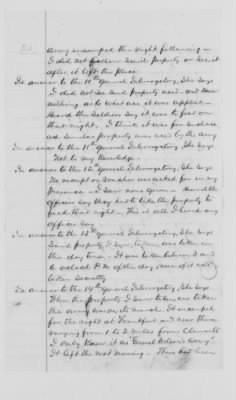 Army encamped this night following on
I did not follow said property or see it
after it left this place
In answer to the 10th General Interrogatory, She Says
I did not see said property used - and know
nothing as to what use it was applied -
Heard the Soldiers Say it was to feed on
that night. I think it was for such use
as Similar property was used by the Army
In answer to the 11th General Interrogatory, She Says
Not to my Knowledge -
In answer to the 12th General Interrogatory, She Says
No receipt or voucher was asked for in my
presence - I saw none given - Heard the
officer Say they had to take the property to
feed that night - This is all I heard any
officer Say -
In answer to the 13th General Interrogatory, She Says
Said property I saw taken was taken in
the day time - It was taken between 3 and
6 o'clock P.M. of the day none of it was
taken Secretly
In answer to the 14th General Interrogatory, She Says
When the property I saw taken, was taken
the army was on its march. It encamped
for the night at Frankfort and near there
varying from 1 to 2 miles from
I only Know it as "General Wilson's Army"
It left the next morning - There had been